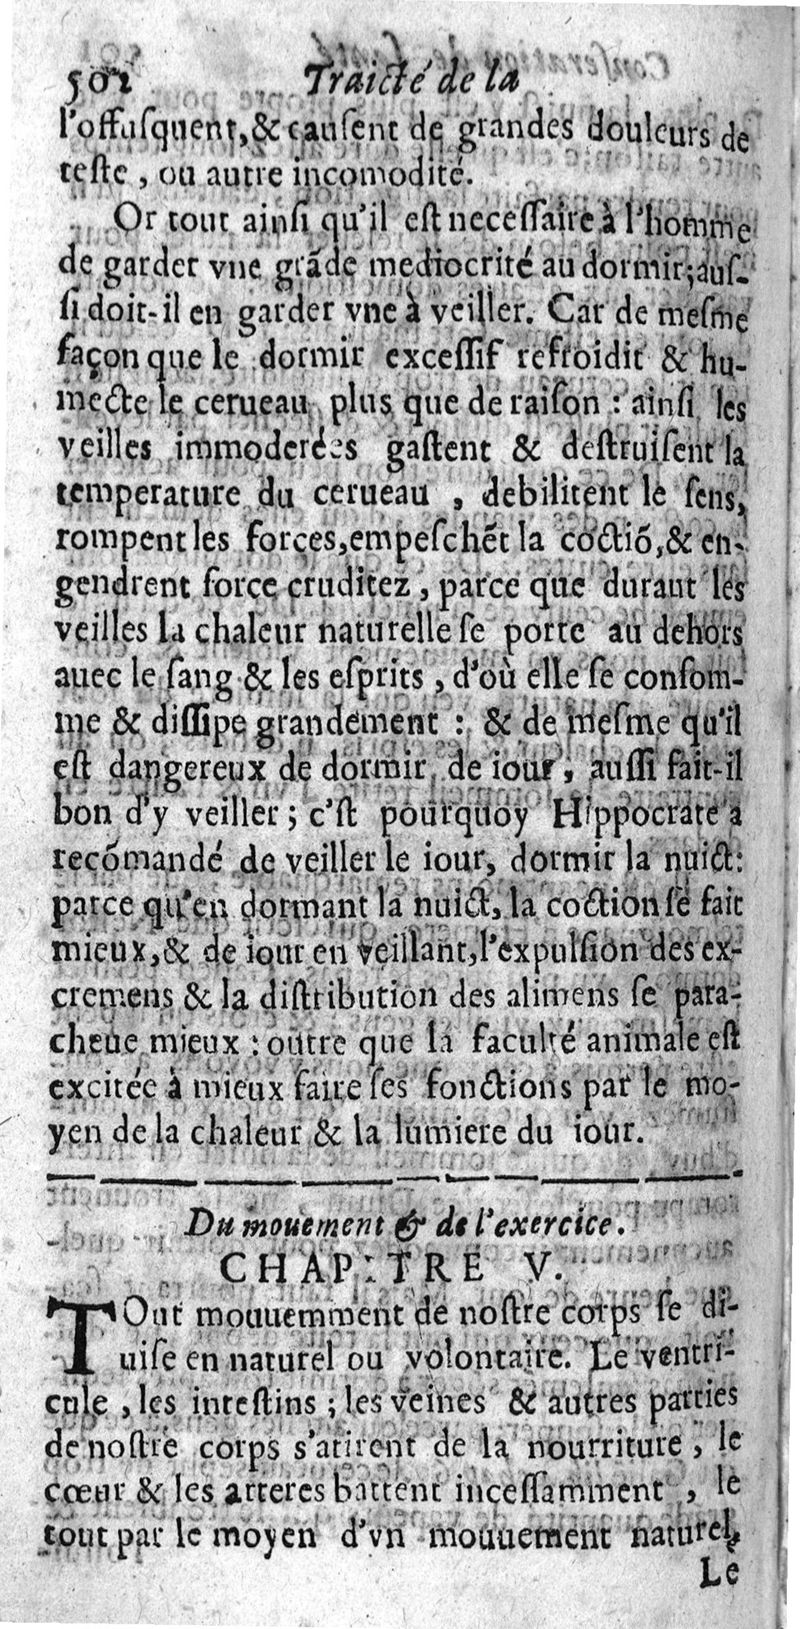 502 Traicté de la
l'offuſquent,& cauſent de grandes douleurs de
teſte, ou autre incomodité.
Or tout ainſi qu'il eſt neceſſaire à l'homme
de garder vne grãde mediocrité au dormir; auſ-
ſi doit-il en garder vne à veiller. Car de meſme
façon que le dormir exceſſif refroidit & hu-
mecte le cerueau plus que de raiſon : ainſi les
veilles immoderées gaſtent & deſtruiſent la
temperature du cerueau , debilitent le ſens,
rompent les forces,empeſchẽt la coctiõ,& en-
gendrent force cruditez , parce que durant les
veilles la chaleur naturelle ſe porte au dehors
auec le ſang & les eſprits , d'où elle ſe conſom-
me & diſſipe grandement : & de meſme qu'il
eſt dangereux de dormir de iour, auſſi fait-il
bon d'y veiller ; c'ſt pourquoy Hippocrate a
recõmandé de veiller le iour, dormir la nuict:
parce qu'en dormant la nuict, la coction ſe fait
mieux,& de iour en veillant,l'expulſion des ex-
cremens & la diſtribution des alimens ſe para-
cheue mieux : outre que la faculté animale eſt
excitée à mieux faire ſes fonctions par le mo-
yen de la chaleur & la lumiere du iour.
Du mouement & de l'exercice.
CHAPITRE V.
TOut mouuemment de noſtre corps ſe di-
uiſe en naturel ou volontaire. Le ventri-
cule , les inteſtins ; les veines & autres parties
de noſtre corps s'atirent de la nourriture , le
cœur & les arteres battent inceſſamment , le
tout par le moyen d'vn mouuement naturel,
Le